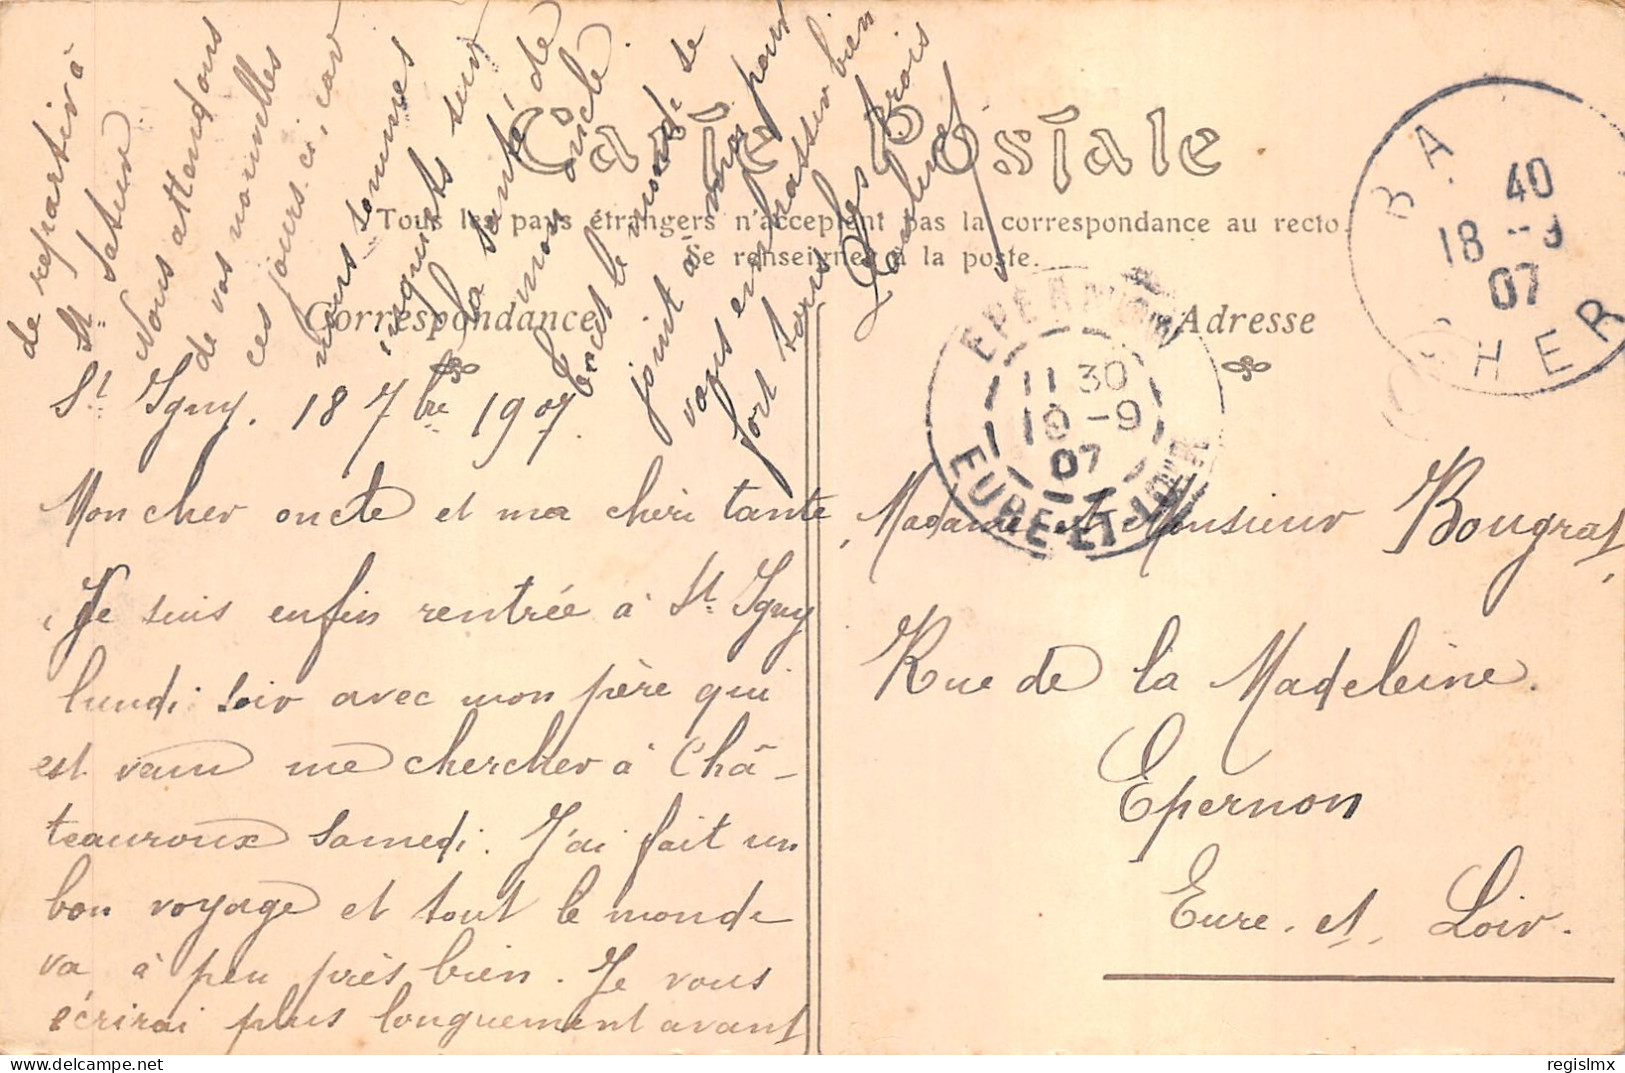 Carte Postale
Tous les pays étrangers n'acceptent pas la correspondance au recto.
Se renseigner à la poste.
Correspondance
Adresse
St Igny. 18 7bre 1907.
Mon cher oncle et ma chéri tante
Je suis enfin rentrée à St Igny
lundi soir avec mon père qui
est venu me chercher à Châ-
teauroux samedi. J'ai fait un
bon voyage et tout le monde
va à peu près bien. Je vous
écrirai plus longuement avant
de repartir à
St Satur
Nous attendons
de vos nouvelles
ces jours-ci, car
nous sommes
inquiets sur
la santé de
mon oncle
tout le monde se
joint à moi pour
vous embrasser bien
fort tous les trois
Madame et Monsieur Bougrat
Rue de la Madeleine.
Epernon
Eure. et. Loir.
EPERNON
11 30
19 -9
07
EURE-ET-LOIR
40
18 -9
07
CHER
delcampe.net
regislmx